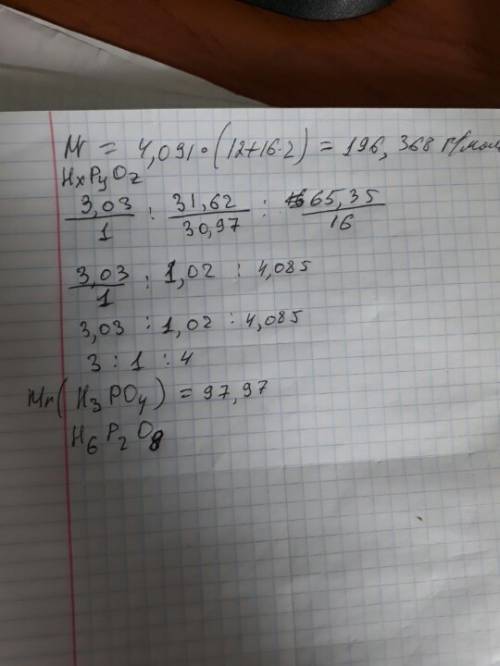 M = 4,091 · (12+16·2) = 196,368 г/моль
HxPyOz
3,03/1 : 31,62/30,97 : 65,35/16
3,03/1 : 1,02 : 4,085
3,03 : 1,02 : 4,085
3 : 1 : 4
Mr(H₃PO₄) = 97,97
H₆P₂O₈